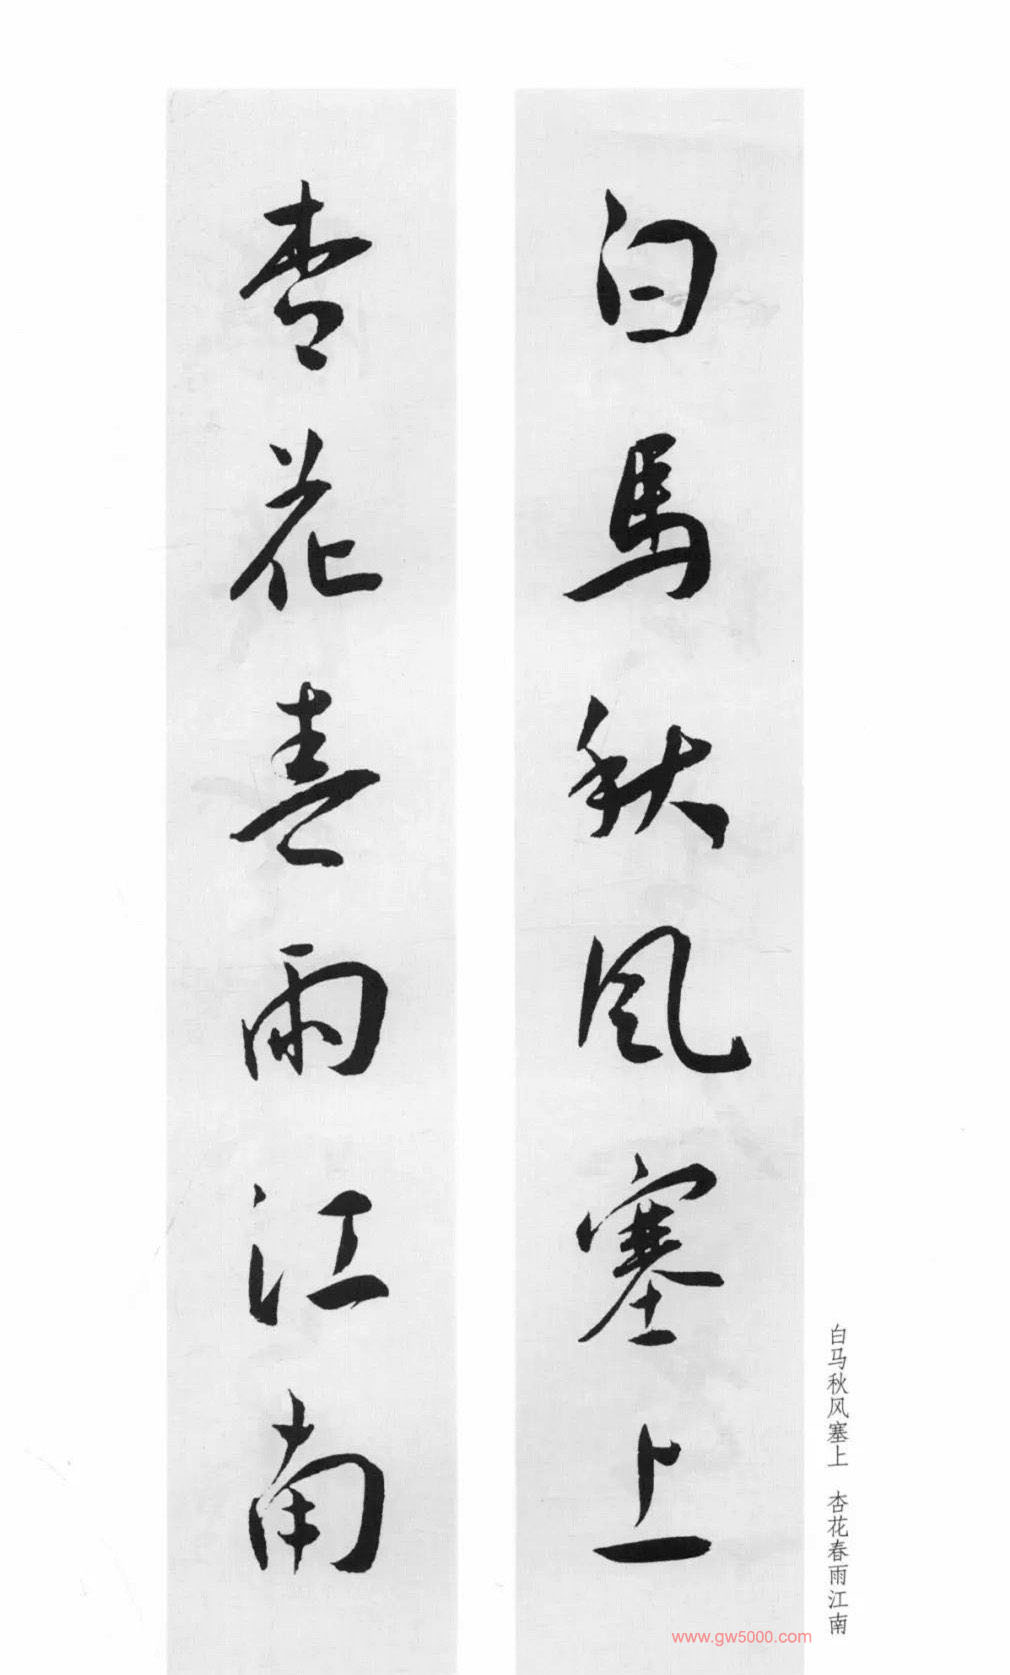 白馬秋风塞上
杏花春雨江南
白马秋风塞上 杏花春雨江南
www.gw5000.com